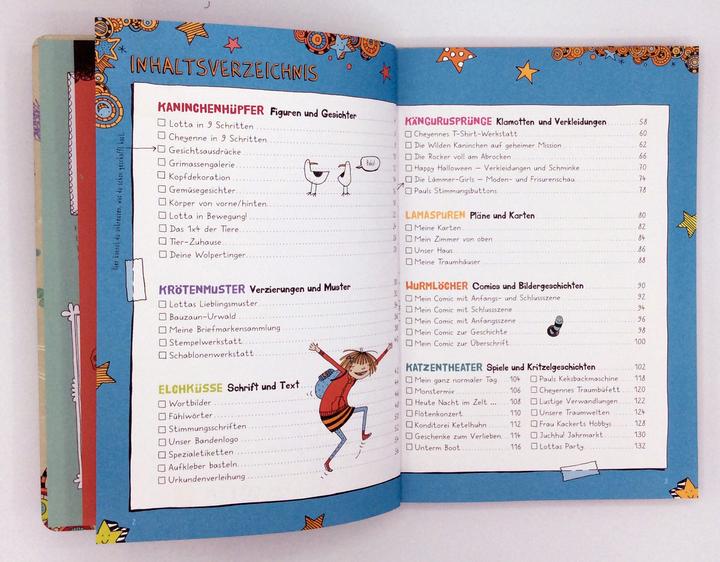 INHALTSVERZEICHNIS
KANINCHENHÜPFER Figuren und Gesichter
Lotta in 9 Schritten
Cheyenne in 9 Schritten
Gesichtsausdrücke
Grimassengalerie
Kopfdekoration
Gemüsegesichter
Körper von vorne/hinten
Lotta in Bewegung!
Das 1x4 der Tiere
Tier-Zuhause
Deine Wolpertinger
KRÖTENMUSTER Verzierungen und Muster
Lottas Lieblingsmuster
Bauzaun-Urwald
Meine Briefmarkensammlung
Stempelwerkstatt
Schablonenwerkstatt
ELCHKÜSSE Schrift und Text
Wortbilder
Fühlwörter
Stimmungsschriften
Unser Bandenlogo
Spezialetiketten
Aufkleber basteln
Urkundenverleihung
2
KÄNGURUSPRÜNGE Klamotten und Verkleidungen 58
Cheyennes T-Shirt-Werkstatt 60
Die Wilden Kaninchen auf geheimer Mission 62
Die Rocker voll am Abrocken 66
Happy Halloween – Verkleidungen und Schminke 70
Die Lämmer-Girls – Moden- und Frisurenschau 74
Pauls Stimmungsbuttons 78
LAMASPUREN Pläne und Karten 80
Meine Karten 82
Mein Zimmer von oben 84
Unser Haus 86
Meine Traumhäuser 88
WURMLÖCHER Comics und Bildergeschichten 90
Mein Comic mit Anfangs- und Schlussszene 92
Mein Comic mit Schlussszene 94
Mein Comic mit Anfangsszene 96
Mein Comic zur Geschichte 98
Mein Comic zur Überschrift 100
KATZENTHEATER Spiele und Kritzelgeschichten 102
Mein ganz normaler Tag 104 Pauls Keksbackmaschine 118
Monstermie 106 Cheyennes Traumbüfett 120
Heute Nacht im Zelt ... 108 Lustige Verwandlungen 122
Flötenkonzert 110 Unsere Traumwelten 124
Konditorei Ketelhuhn 112 Frau Kackerts Hobbys 128
Geschenke zum Verlieben 114 Juchhu! Jahrmarkt 130
Unterm Boot 116 Lottas Party 132
3